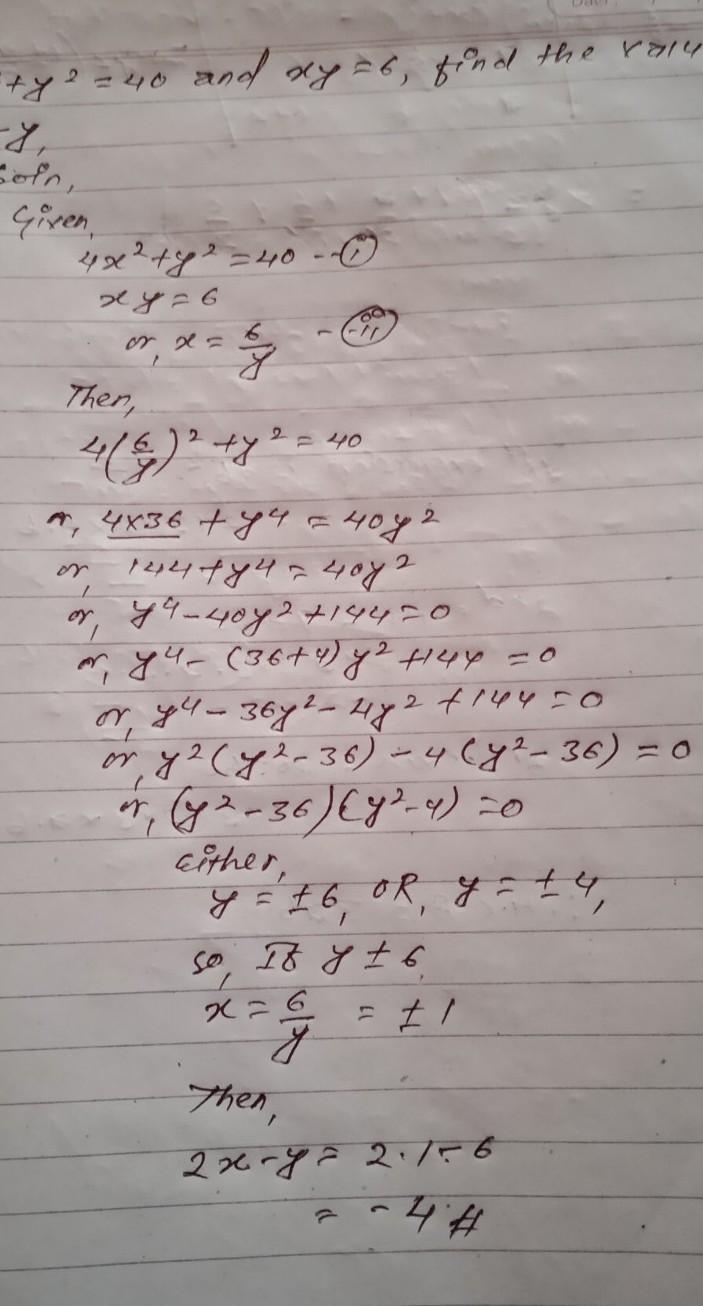 +y² = 40 and xy = 6, find the valu
-y,
Soln,
Given,
4x² + y² = 40 --(i)
xy = 6
or, x = 6/y -(ii)
Then,
4(6/y)² + y² = 40
or, 4×36 + y⁴ = 40y²
or, 144 + y⁴ = 40y²
or, y⁴ - 40y² + 144 = 0
or, y⁴ - (36+4)y² + 144 = 0
or, y⁴ - 36y² - 4y² + 144 = 0
or, y²(y² - 36) - 4(y² - 36) = 0
or, (y² - 36)(y² - 4) = 0
Either,
y = ±6, OR, y = ±4,
so, If y ± 6,
x = 6/y = ±1
Then,
2x - y = 2·1 - 6
= -4 #